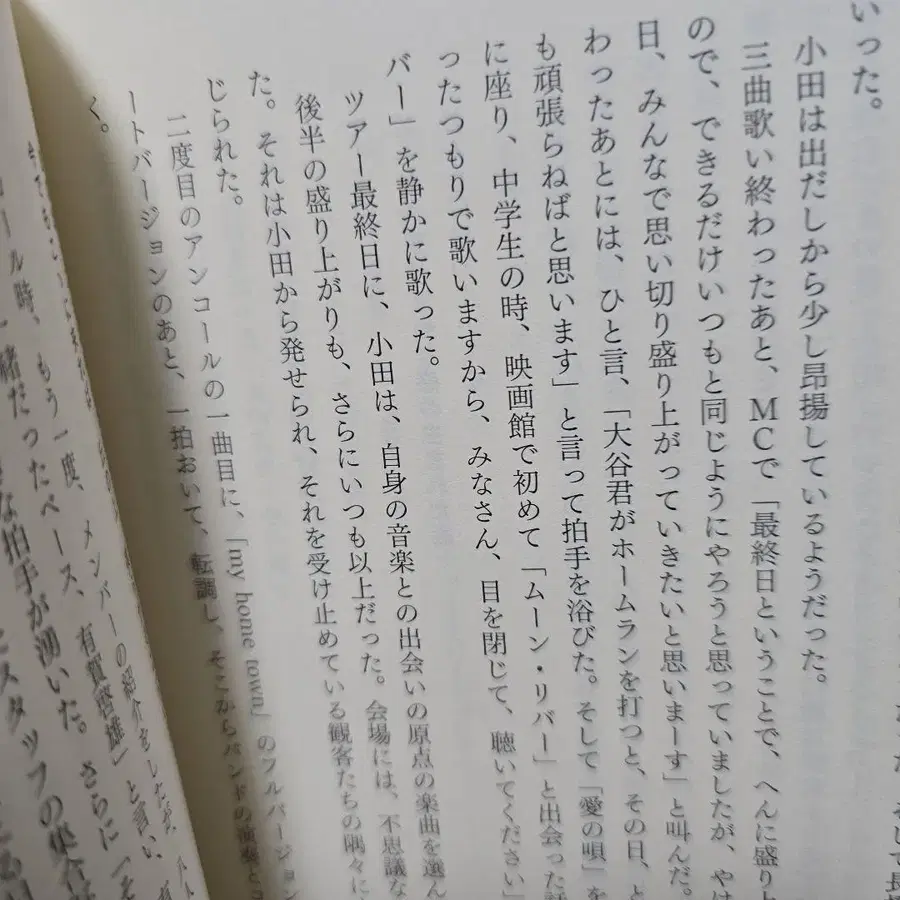 いった。
小田は出だしから少し昂揚しているようだった。
三曲歌い終わったあと、MCで「最終日ということで、へんに盛り
ので、できるだけいつもと同じようにやろうと思っていましたが、やは
日、みんなで思い切り盛り上がっていきたいと思いまーす」と叫んだ。
わったあとには、ひと言、「大谷君がホームランを打つと、その日、
も頑張らねばと思います」と言って拍手を浴びた。そして「愛の唄」を
に座り、中学生の時、映画館で初めて「ムーン・リバー」と出会った話
ったつもりで歌いますから、みなさん、目を閉じて、聴いてください」
バー」を静かに歌った。
ツアー最終日に、小田は、自身の音楽との出会いの原点の楽曲を選ん
後半の盛り上がりも、さらにいつも以上だった。会場には、不思議な
た。それは小田から発せられ、それを受け止めている観客たちの隅々に
じられた。
二度目のアンコールの一曲目に、「my home town」のフルバージョン
ートバージョンのあと、一拍おいて、転調し、そこからバンドの演奏と
く。
ール時、もう一度、メンバーの紹介をしたが、
一緒だったベース、有賀啓雄」と言い、
な拍手が湧いた。さらに「そ
スタッフの集合